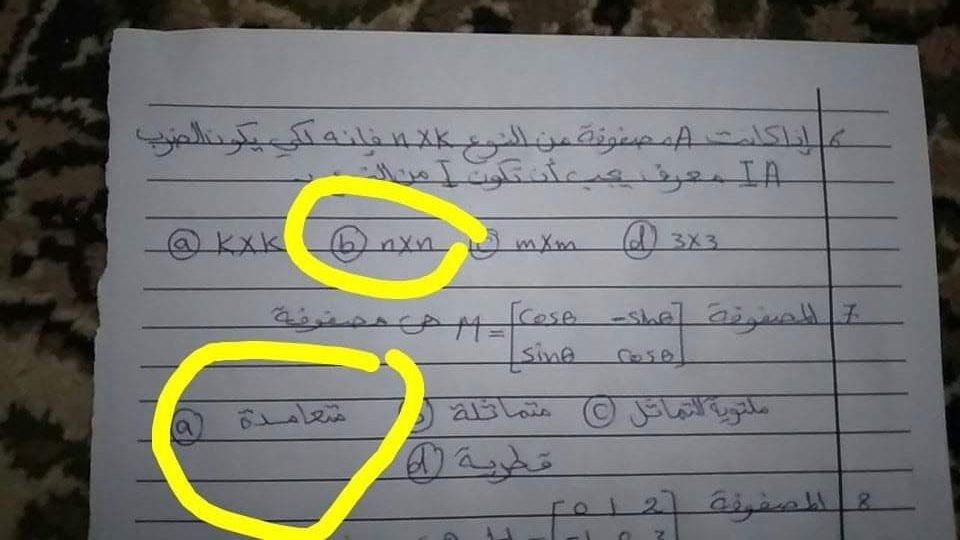 6 إذا كانت A مصفوفة من النوع n×k فإنه لكي يكون الضرب
IA معرف يجب أن تكون I من
ⓐ K×K ⓑ n×n ⓒ m×m ⓓ 3×3
7 المصفوفة M = [cosθ -sinθ هي مصفوفة
sinθ cosθ]
ⓐ متعامدة ⓑ متماثلة ⓒ ملتوية التماثل
ⓓ قطرية
8 المصفوفة [0 1 2]
-1 0 3